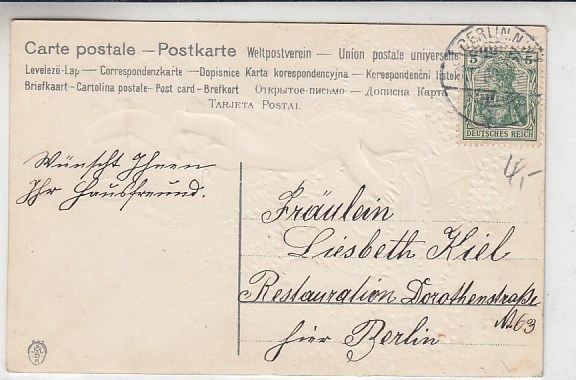 Carte postale — Postkarte Weltpostverein — Union postale universelle
Levelező-Lap — Correspondenzkarte — Dopisnice Karta korespondencyjna — Kerespondenční lístek
Briefkaart - Cartolina postale - Post card - Brefkort Открытое письмо — Дописна Карта
Tarjeta Postal
BERLIN, N.W.
5 5
DEUTSCHES REICH
Wünscht Ihnen
Ihr Hausfreund.
4,-
Fräulein
Liesbeth Kiel
Restauration Dorotheenstraße
№ 63
hier Berlin